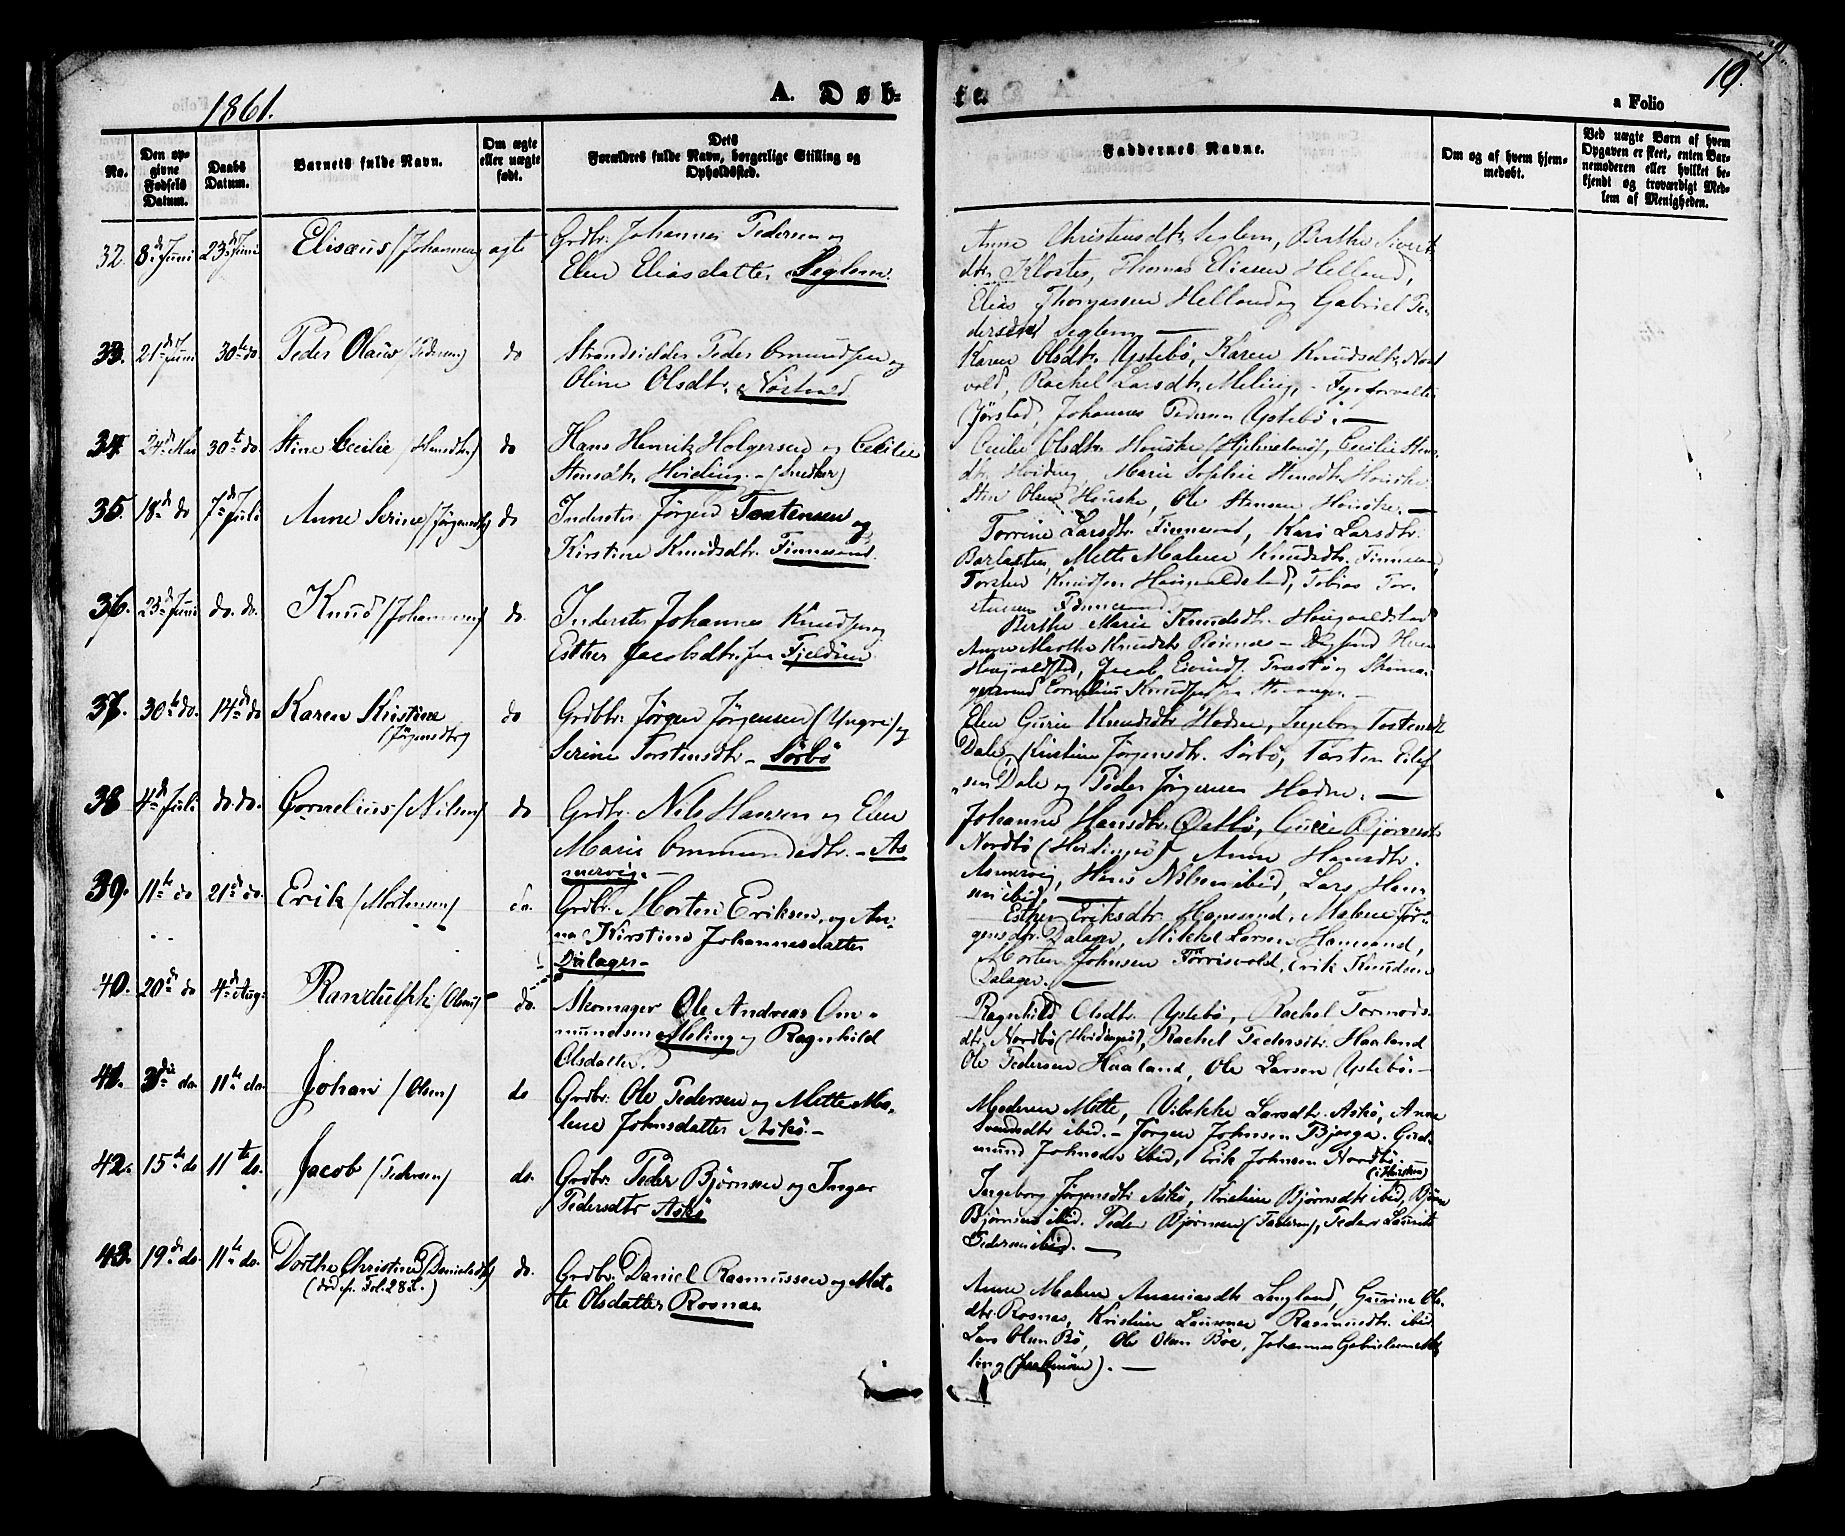 1861.
A. Døb-
te.
19.
a Folio
No.
Den op-
givne
Fødsels
Datum.
Daabs
Datum.
Barnets fulde Navn.
Om ægte
eller uægte
født.
Dets
Forældres fulde Navn, borgerlige Stilling og
Opholdssted.
Faddernes Navne.
Om og af hvem hjem-
medøbt.
Ved uægte Barn af hvem
Opgaven er skeet, enten Bar-
nemoderen eller hvilket be-
kjendt og troværdigt Med-
lem af Menigheden.
32. 8de Juni 23de Juni Elisæus (Johannesen) ægte Grdbr. Johannes Pedersen og
Elen Eliasdatter Seglem.
Anne Christensdtr. Seglem, Berthe Sivert
dtr. Kloster, Thomas Eliasen Helland,
Elias Thomassen Helland og Gabriel Pe-
dersen Seglem —
33. 21de Juni 30te do Peder Olaus (Pedersen) do Strandsidder Peder Omundsen og
Oline Olsdtr. Nøstvold
Karen Olsdtr. Ystebø, Karen Knudsdtr. Nøst
vold, Rachel Larsdtr. Meling, - Fyrforvalter
Jörstad, Johannes Pedersen Ystebö. —
34. 24de Mai 30te do. Stine Cecilie (Hansdtr.) do Hans Henrik Holgersen og Cecilie
Stensdtr. Hviding. - (Snedker)
Cecilie Olsdtr. Houske, Cecilie Stens
dtr. Hviding, Marie Sophie Stensdtr. Houske
Sten Olsen Houske, Ole Stensen Houske. —
35. 18de do 7de Juli Anne Serine (Jørgensdtr) do Inderster Jørgen Torstensen og
Kirstine Knudsdtr. Finnesand.
Torrine Larsdtr. Finnesand, Kari Larsdtr.
Mette Malene Knudsdtr. Finnesand
Torsten Knudsen Haugvaldstad, Tobias Tor-
stensen Finnesand.
36. 23de Juni do. do. Knud (Johannesen) do. Inderster Johannes Knudsen og
Esther Jacobsdtr. Fjeldöen.
Berthe Marie Knudsdtr. Haugvaldstad
Anne Marthe Knudsdtr.
Haugvaldstad, Jacob Eivinds.
Cornelius Knudsen fra Stavanger. —
37. 30te do. 14de do Karen Kristine
(Jörgensdtr) do Grdbr. Jørgen Jørgensen (Yngre) og
Serine Torstensdtr - Sörbö
Elen Gurie Knudsdtr. Hodne, Ingeborg Torstensdtr
Dale, Kristine Jørgensdtr. Sörbö, Torsten Eilef
sen Dale og Peder Jørgensen Hodne. —
38 4de Juli do do. Cornelius (Nilsen) do Grdbr. Nils Hansen og Elen
Marie Ommundsdtr. - As
mervig. -
Johanne Hansdtr. Østbö, Gurie Bjørnsdtr
Nordbö (Hvidingsö) Anne Hansdtr.
Asmervig, Hans Nilsen ibid, Lars Han
sen ibid.
39. 11te do 21de do. Erik (Mortensen) do. Grdbr. Morten Eriksen, og An-
na Kirstine Johannesdatter
Dalager -
Esther Eriksdtr. Hanasand, Malene Jør-
gensdtr. Dalager, Mikkel Larsen Hanasand,
Morten Johnsen Törrisvold, Erik Knudsen
Dalager. —
40. 20de do 4de Aug. Randulph (Olsen) do. Skomager Ole Andreas Om-
mundsen Meling og Ragnhild
Olsdatter.
Ragnhild Olsdtr. Ystebø, Rachel Tormods-
dtr. Nordbø (Hvidingsö), Rachel Pedersdtr. Haaland
Ole Pedersen Haaland, Ole Larsen Ystebö. -
41. 3die do. 11te do. Johan (Olsen) do Grdbr. Ole Pedersen og Mette Ma-
lene Johnsdatter Askö. -
Moderen Mette, Vibekke Larsdtr. Askö, Anne
Svendsdtr ibid. - Jørgen Johnsen Bjerga. Gud-
mund Johnsen ibid, Erik Johnsen Nordbö.
42. 15de do 11te do. Jacob (Pedersen) do. Grdbr. Peder Bjørnsen og Inger
Pedersdtr Askö
Ingeborg Jørgensdtr Askö, Kristine Bjørnsdtr ibid, Bjørn
Bjørnsen ibid. Peder Bjørnsen (Faderen), Peder Laurits
Pedersen ibid. —
43. 19de do. 11te do. Dorthe Christine (Danielsdtr) do. Grdbr. Daniel Rasmussen og Met-
(død cfr. Fol. 28 L.)
te Olsdatter Rosnæs
Anne Malene Ananiasdtr Langland, Gurine Ols-
dtr. Rosnæs, Kristine Laurense Rasmusdtr. ibid.
Lars Olsen Bö, Ole Olsen Böe, Johannes Gabrielsen Me
ling —